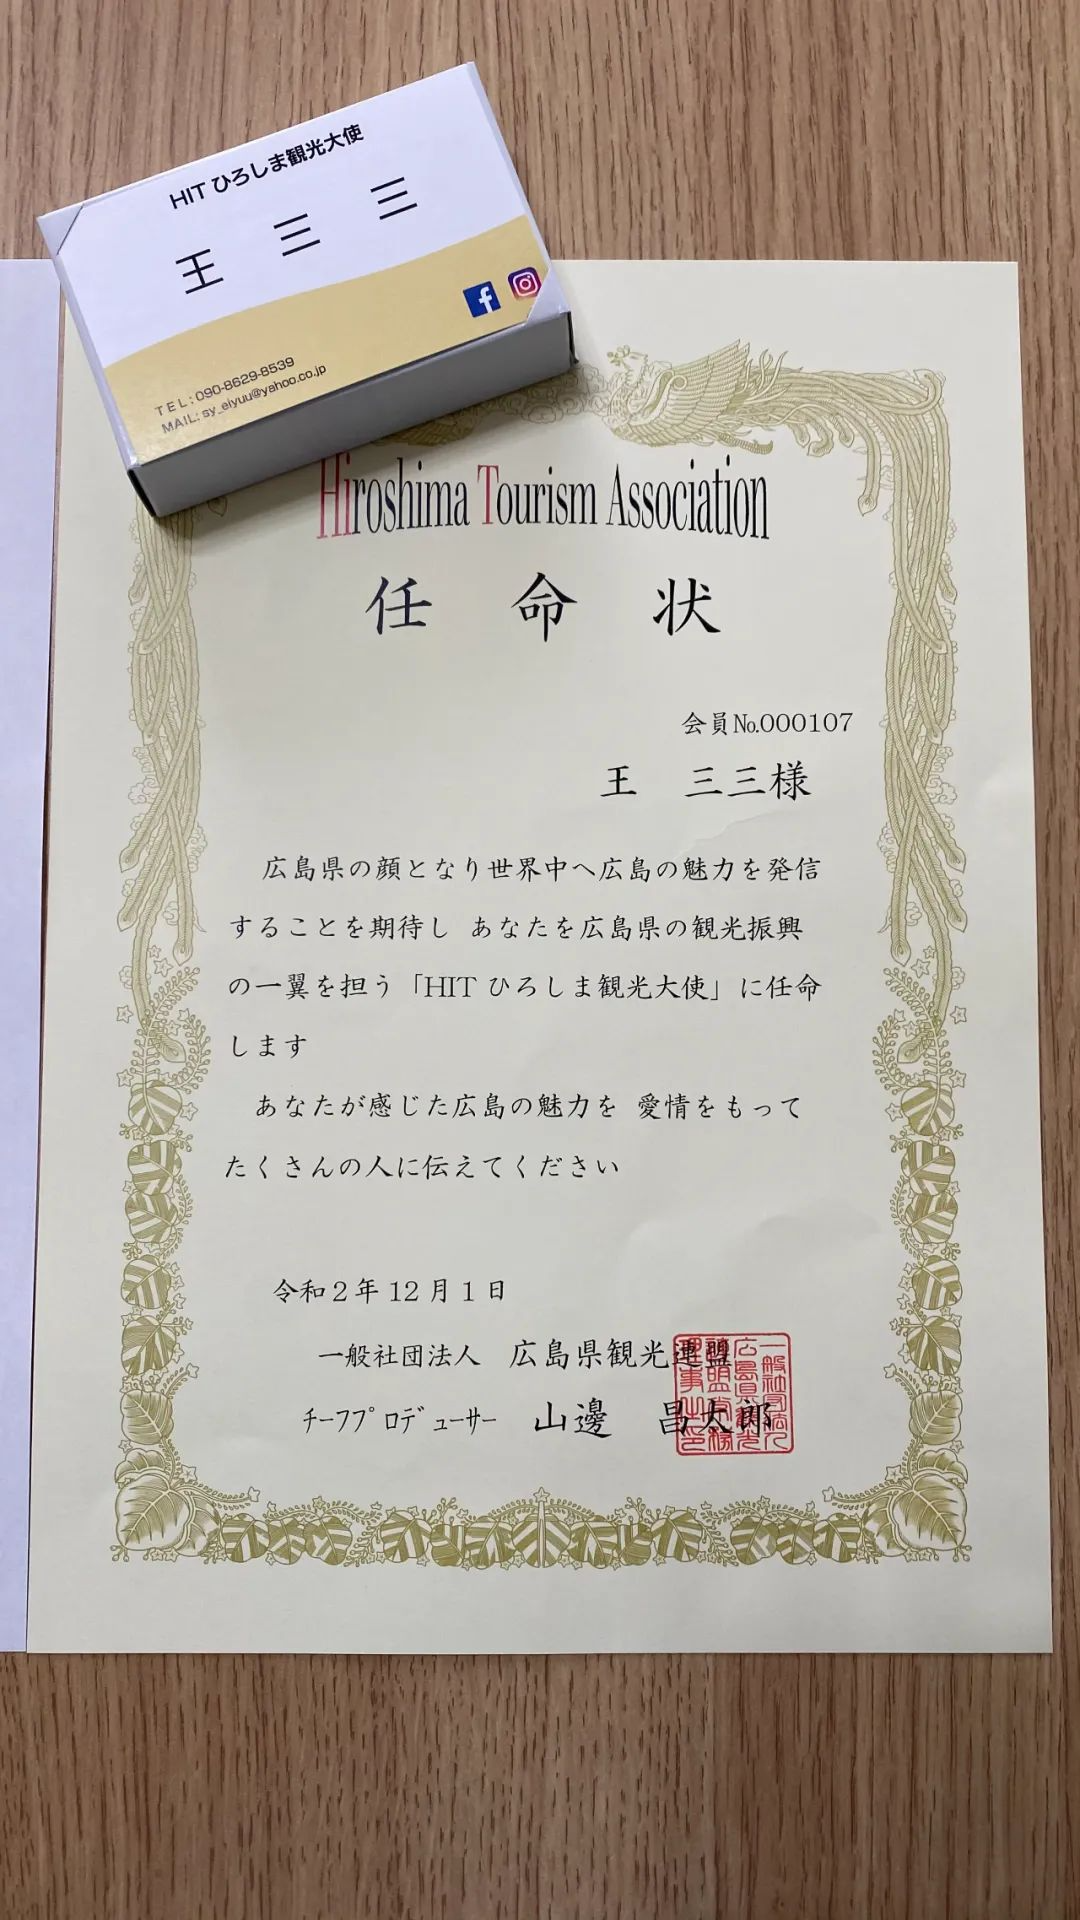 HIT ひろしま観光大使
王 三 三
TEL:090-8629-8539
MAIL:sy_eiyuu@yahoo.co.jp
Hiroshima Tourism Association
任 命 状
会員№000107
王 三三様
広島県の顔となり世界中へ広島の魅力を発信
することを期待し あなたを広島県の観光振興
の一翼を担う「HIT ひろしま観光大使」に任命
します
あなたが感じた広島の魅力を 愛情をもって
たくさんの人に伝えてください
令和2年12月1日
一般社団法人 広島県観光連盟
ﾁｰﾌﾌﾟﾛﾃﾞｭｰｻｰ 山邊 昌太郎